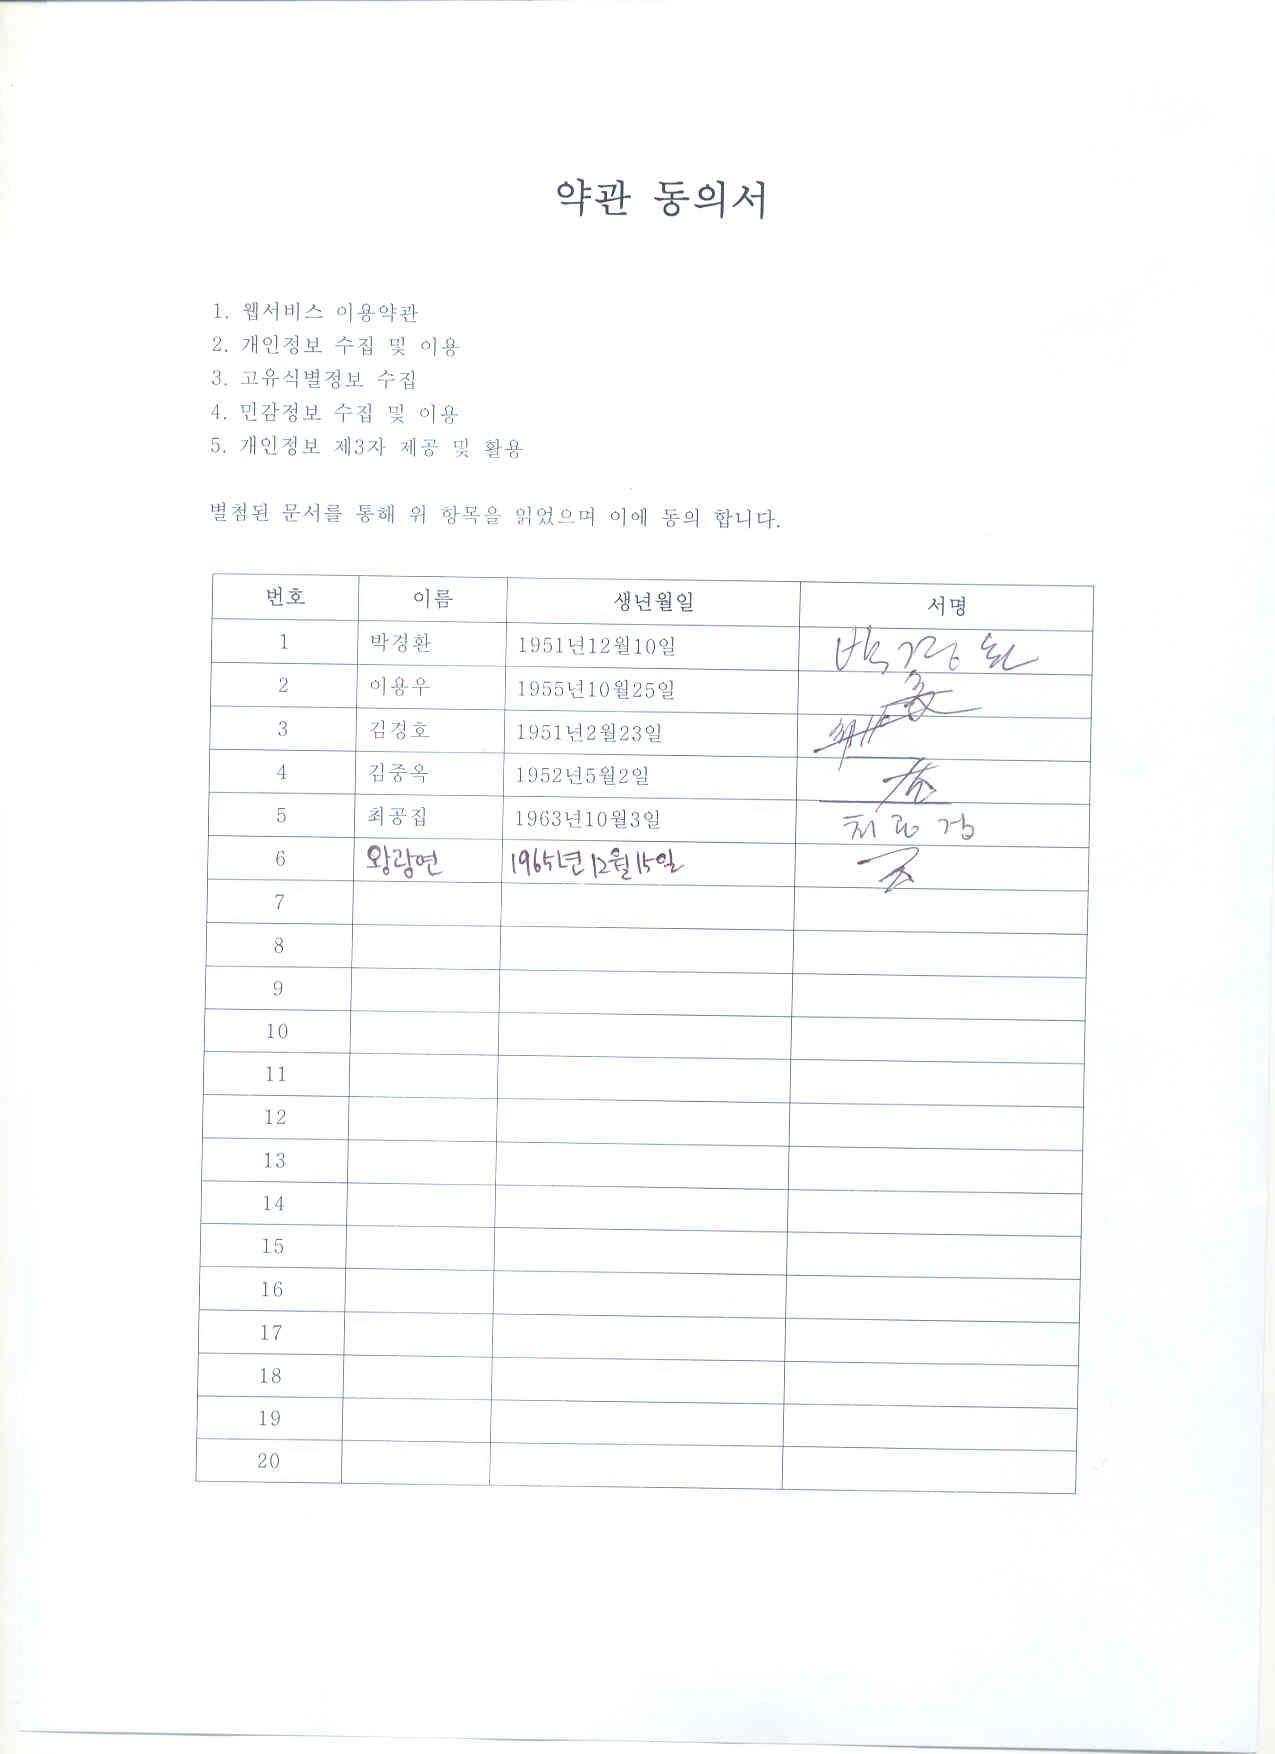 약관 동의서
1. 웹서비스 이용약관
2. 개인정보 수집 및 이용
3. 고유식별정보 수집
4. 민감정보 수집 및 이용
5. 개인정보 제3자 제공 및 활용
별첨된 문서를 통해 위 항목을 읽었으며 이에 동의 합니다.
번호 이름 생년월일 서명
1 박경환 1951년12월10일 박경환
2 이용우 1955년10월25일
3 김경호 1951년2월23일
4 김중옥 1952년5월2일
5 최공집 1963년10월3일
6 왕광연 1965년12월15일
7
8
9
10
11
12
13
14
15
16
17
18
19
20